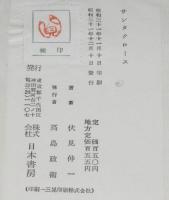 サンタクロース
昭和三十一年十二月十日印刷
昭和三十一年十二月二十日発行
定価百五〇円
地方定価百五五円
著者 伏見伸一
発行者 高島政衛
検印
発行
株式会社 日本書房
(印刷・三晃印刷株式会社)